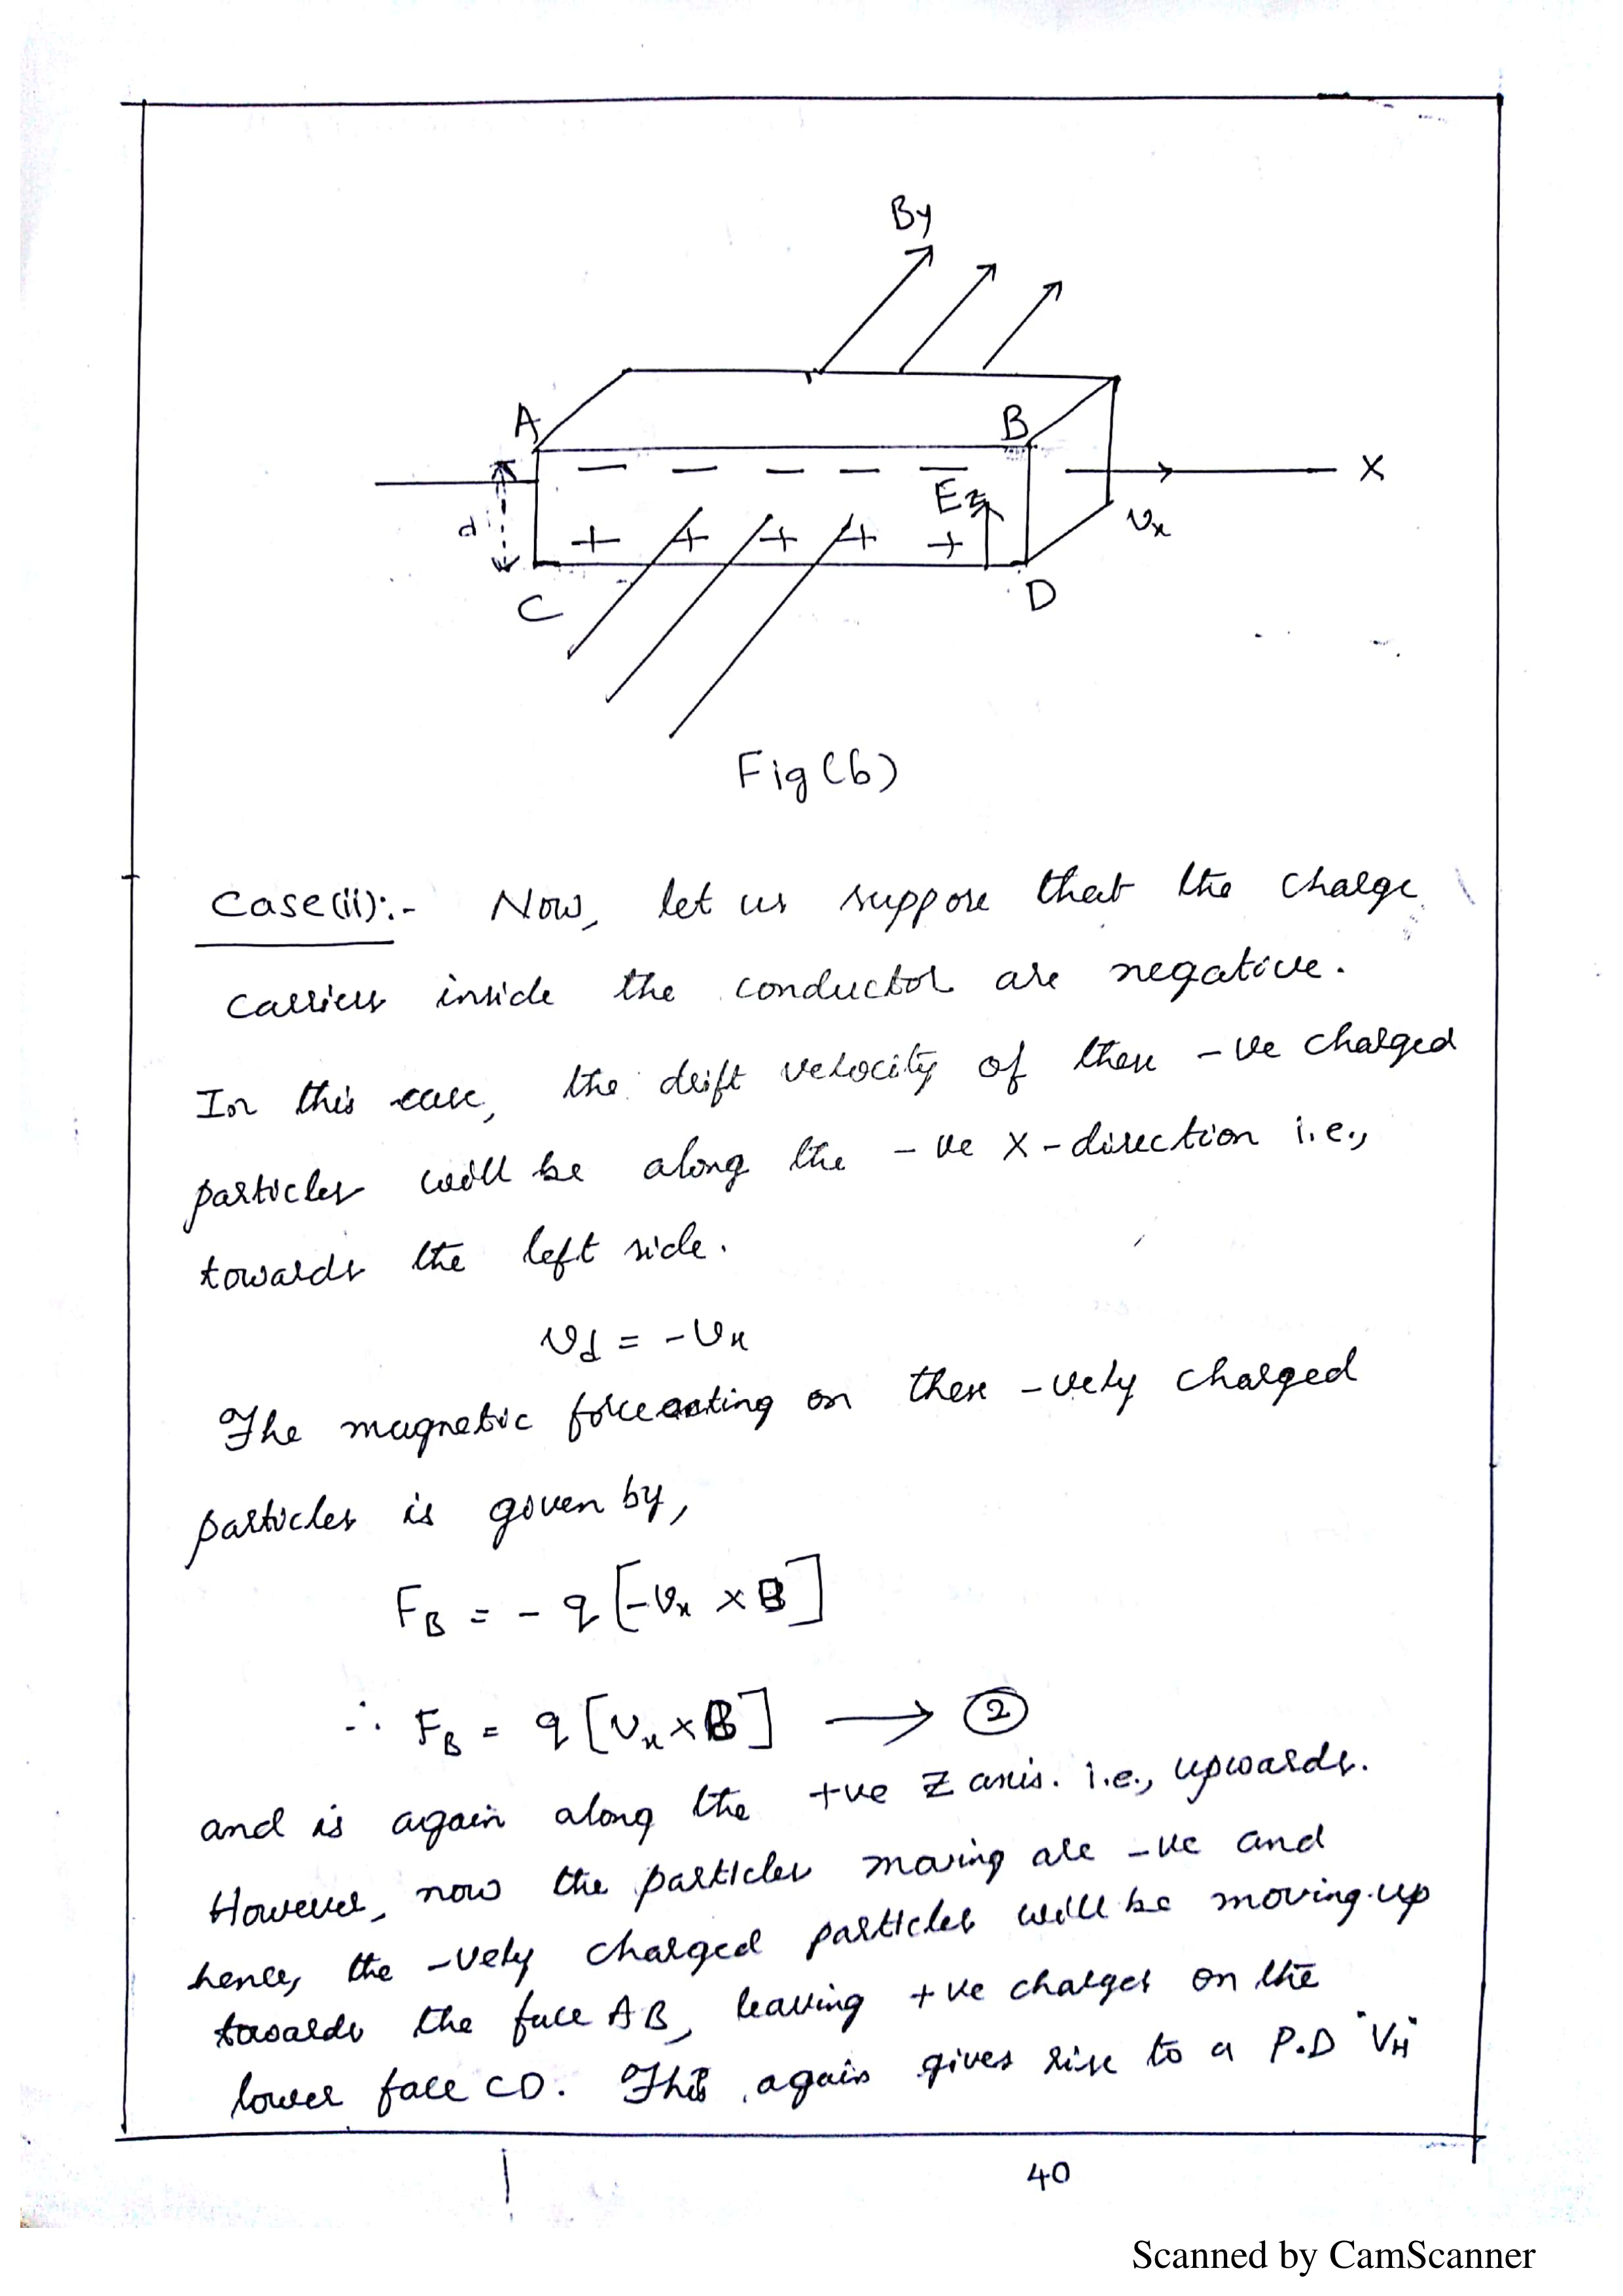 By
A
B
X
d
Ez
vx
C
D
Fig (b)
Case(ii):- Now, let us suppose that the charge
carriers inside the conductor are negative.
In this case, the drift velocity of these -ve charged
particles will be along the -ve x-direction i.e.,
towards the left side.
vd = -vx
The magnetic force acting on these -vely charged
particles is given by,
FB = - q [-vx × B]
∴ FB = q [vx × B] → ②
and is again along the +ve Z axis. i.e., upwards.
However, now the particles moving are -ve and
hence, the -vely charged particles will be moving up
towards the face AB, leaving +ve charges on the
lower face CD. This again gives rise to a P.D "VH"
40
Scanned by CamScanner